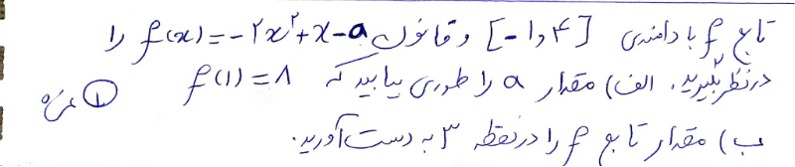 تابع f با دامنه‌ی [-1و4] و قانون f(x)=-2x²+x-a را
در نظر بگیرید. الف) مقدار a را طوری بیابید که f(1)=8 ① نمره
ب) مقدار تابع f را در نقطه 3 به دست آورید.